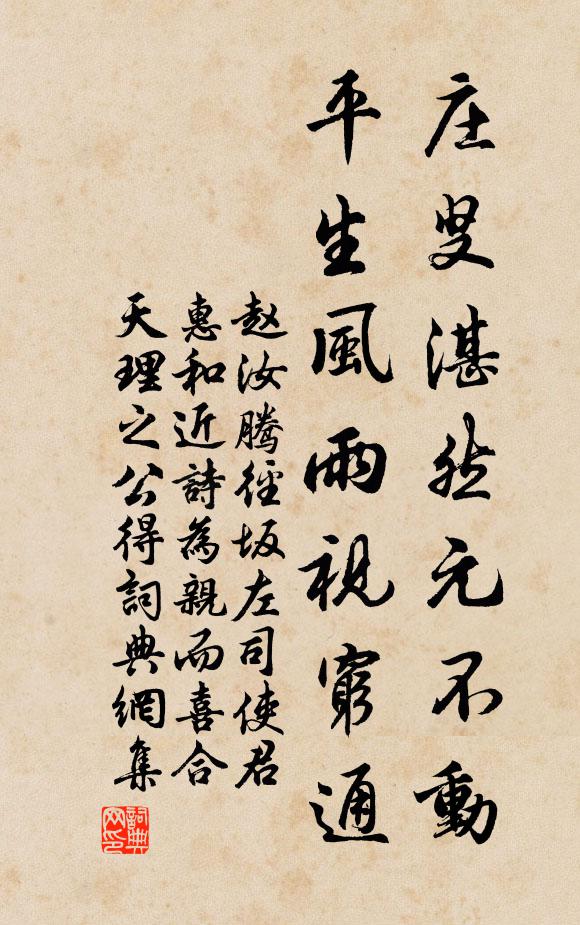 庄叟湛然元不動
平生風雨視窮通
赵汝騰徑坂左司使君
惠和近詩為親而喜合
天理之公得詞典網集
詞典网印